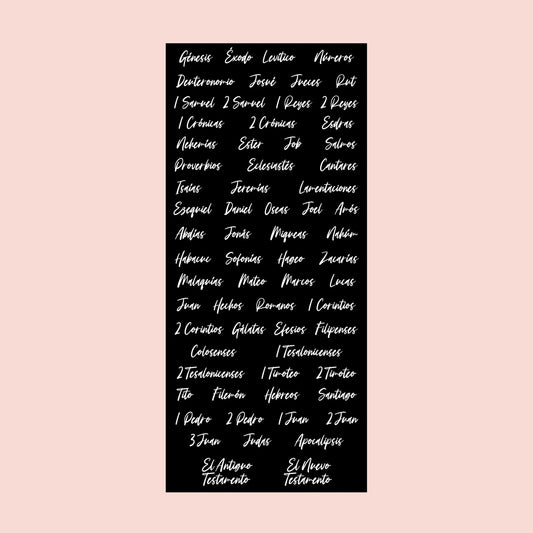 Génesis Éxodo Levítico Números
Deuteronomio Josué Jueces Rut
1 Samuel 2 Samuel 1 Reyes 2 Reyes
1 Crónicas 2 Crónicas Esdras
Nehemías Ester Job Salmos
Proverbios Eclesiastés Cantares
Isaías Jeremías Lamentaciones
Ezequiel Daniel Oseas Joel Amós
Abdías Jonás Miqueas Nahúm
Habacuc Sofonías Hageo Zacarías
Malaquías Mateo Marcos Lucas
Juan Hechos Romanos 1 Corintios
2 Corintios Gálatas Efesios Filipenses
Colosenses 1 Tesalonicenses
2 Tesalonicenses 1 Timoteo 2 Timoteo
Tito Filemón Hebreos Santiago
1 Pedro 2 Pedro 1 Juan 2 Juan
3 Juan Judas Apocalipsis
El Antiguo Testamento El Nuevo Testamento